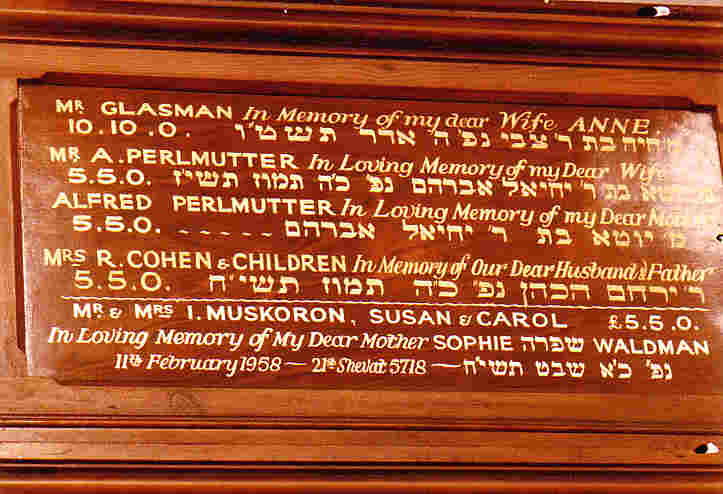 MR GLASMAN In Memory of my dear Wife ANNE.
10.10.0. חיה בת ר' צבי נפ' ה' אדר תשט"ו
MR A. PERLMUTTER In Loving Memory of my Dear Wife
5.5.0. בת ר' יחיאל אברהם נפ' כ"ה תמוז תשי"ז
ALFRED PERLMUTTER In Loving Memory of my Dear Mother
5.5.0. - - - - - מ' יוטא בת ר' יחיאל אברהם
MRS R. COHEN & CHILDREN In Memory of Our Dear Husband & Father
5.5.0. ר' ירחם הכהן נפ' כ"ה תמוז תשי"ח
MR & MRS I. MUSKORON, SUSAN & CAROL £5.5.0.
In Loving Memory of My Dear Mother SOPHIE שפרה WALDMAN
11th February 1958 — 21st Shevat 5718 — נפ' כ"א שבט תשי"ח